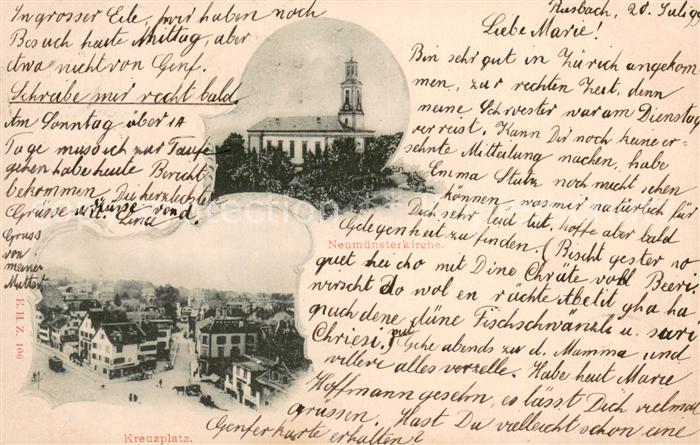 Rusbach, 20. Juli 99
Liebe Marie!
Bin sehr gut in Zürich angekom
men, zur rechten Zeit, denn
meine Schwester war am Dienstag
verreist. Kann Dir noch keine er-
sehnte Mitteilung machen, habe
Emma Stutz noch nicht sehen
können, was mir natürlich für
Dich sehr leid tut, hoffe aber bald
Gelegenheit zu finden. (Bischt gester no
guet hei cho mit Dine Chräte voll Beeri
wirscht do wol en rächte Abetit gha ha
nach dene düne Fischschwänzli u. suri
Chriesi.) Gehe abends zu d. Mamma und
will ere alles verzelle. Habe heut Marie
Hoffmann gesehn, es lässt Dich vielmal
grüssen. Hast Du vielleicht schon eine
Genferkarte erhalten?
In grosser Eile, wir haben noch
Besuch heute Mittag, aber
etwa nicht von Genf.
Schreibe mir recht bald.
Am Sonntag über 14
Tage muss ich zur Taufe
gehen habe heute Bericht
bekommen. Die herzlichste
Grüsse u. Küsse von d.
Lina
Gruss
von
meiner
Mutter!
Neumünsterkirche.
E. H. Z. 106
Kreuzplatz.